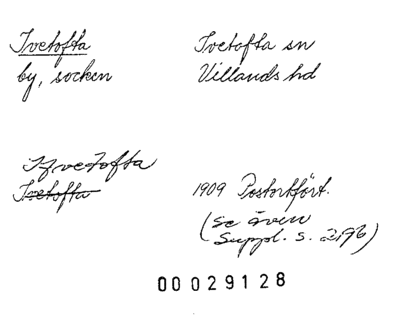 Ivetofta
Ivetofta sn
by, socken
Villands hd
Ifvetofta
Ivetofta
1909 Postortfört.
(se även
Suppl. s. 296)
00029128